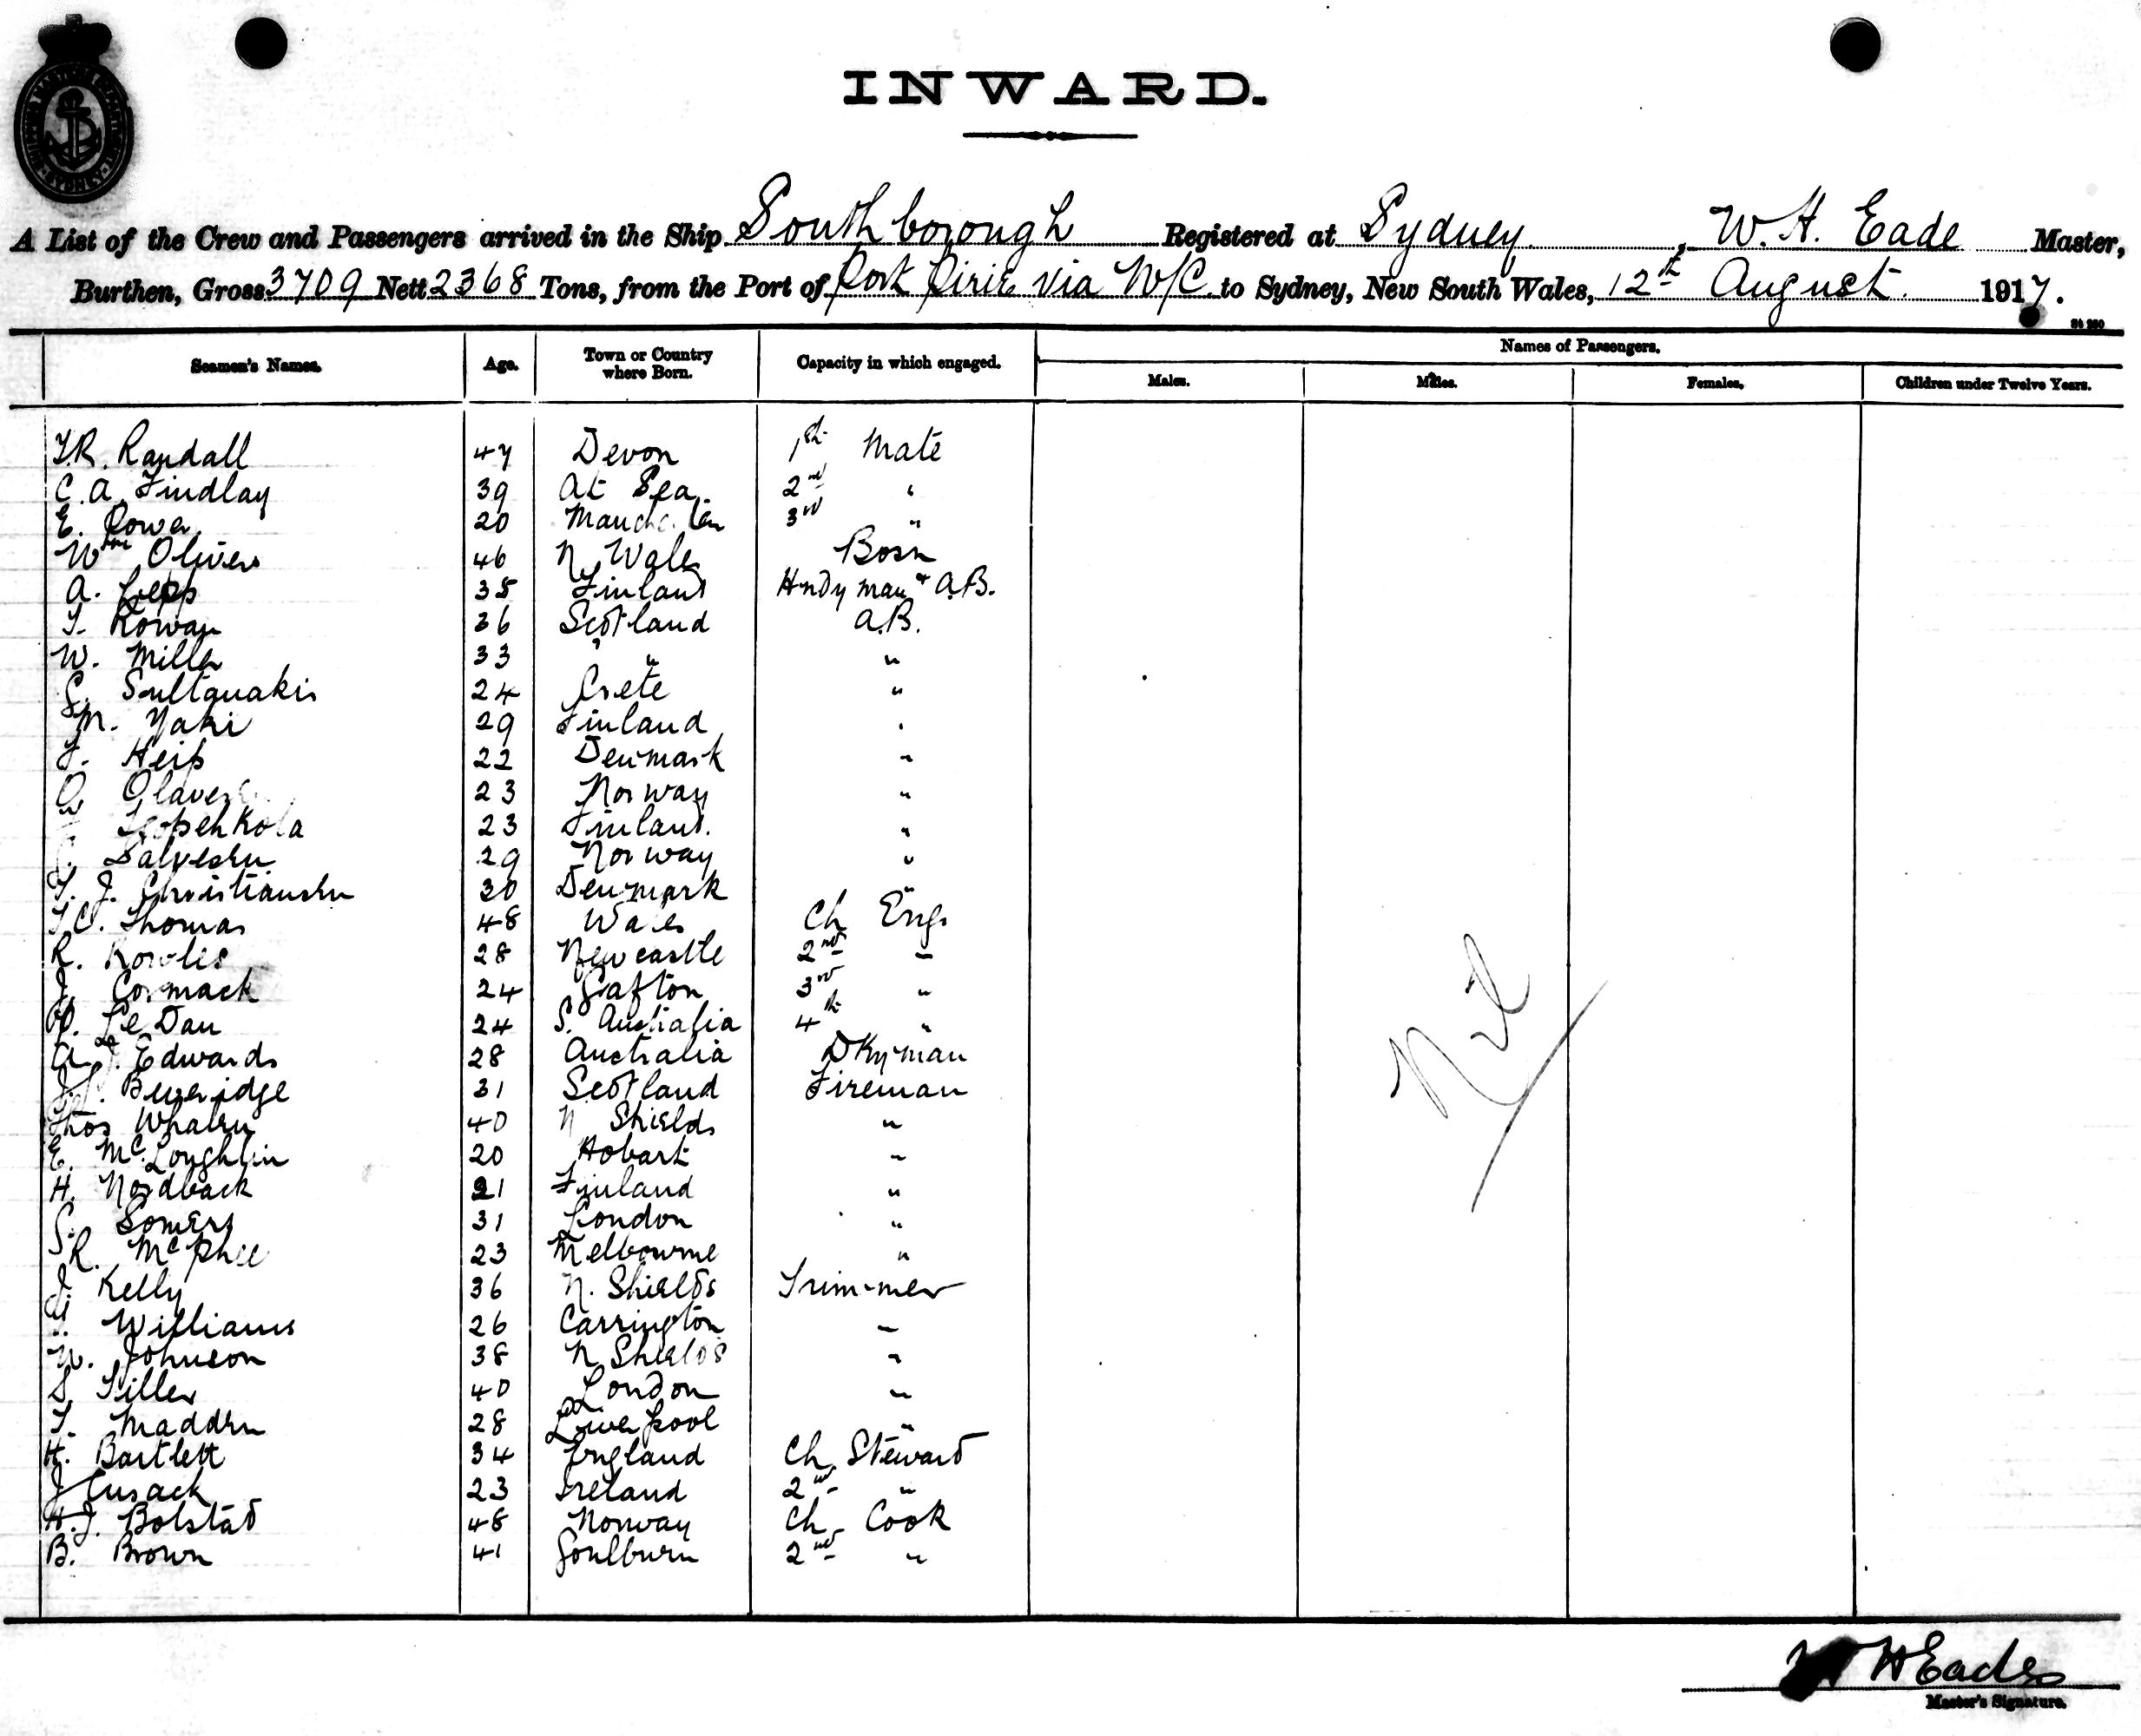 INWARD.
A List of the Crew and Passengers arrived in the Ship Southborough Registered at Sydney, W. H. Eade Master,
Burthen, Gross 3709 Nett 2368 Tons, from the Port of Port Pirie via N/C to Sydney, New South Wales, 12th August 1917.
Names of Passengers.
Seamen's Names. Age. Town or Country where Born. Capacity in which engaged. Males. Males. Females. Children under Twelve Years.
T.R. Randall 47 Devon 1st Mate
C. A. Findlay 39 At Sea. 2nd "
E. 20 Manchester 3rd "
Wm Oliver 46 N. Wales Bosn
A. Lepp 35 Finland Hndy man & A.B.
T. Rowan 36 Scotland A.B.
W. Miller 33 " "
S. Sultanakis 24 Crete "
M. Yaki 29 Finland "
Heip 22 Denmark "
O. 23 Norway "
23 Finland. "
Salvesen 29 Norway "
T. J. Christiansen 30 Denmark "
T.C. Thomas 48 Wales Ch Engr
R. Rowles 28 Newcastle 2nd "
J. Cormack 24 Grafton 3rd "
Le Dan 24 S. Australia 4th "
A. J. Edwards 28 Australia Dkyman
Beveridge 31 Scotland Fireman
Thos Whalen 40 N Shields "
E. McLoughlin 20 Hobart "
H. Nordback 21 Finland "
S. Somers 31 London "
R. McPhee 23 Melbourne "
J. Kelly 36 N. Shields Trimmer
Williams 26 Carrington "
W. Johnson 38 N Shields "
S. Tiller 40 London "
T. Madden 28 Liverpool "
H. Bartlett 34 England Ch. Steward
J Cusack 23 Ireland 2nd "
H.J. Bolstad 48 Norway Ch. Cook
B. Brown 41 Goulburn 2nd "
Nil
W H Eade
Master's Signature.